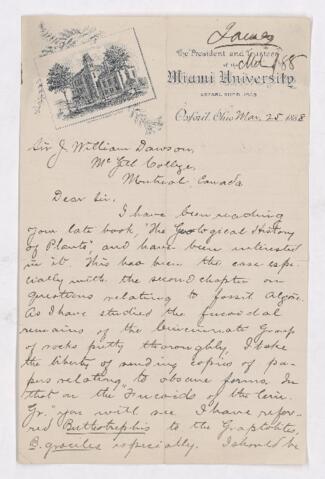 James
The President and Trustees
of the
Miami University
Oxford, Ohio Mar. 25 1888
Sir J. William Dawson,
McGill College,
Montreal, Canada
Dear Sir,
I have been reading
your late book, "The Geological History
of Plants" and have been interested
in it. This has been the case espe-
cially with the second chapter on
questions relating to fossil Algae.
As I have studied the fucoidal
remains of the Cincinnati Group
of rocks pretty thoroughly, I take
the liberty of sending copies of pa-
pers relating to obscure forms. In
that on the Fucoids of the Cin.
Gr. you will see I have refer-
red Buthotrephis to the Graptolites,
B. gracilis especially. I should be